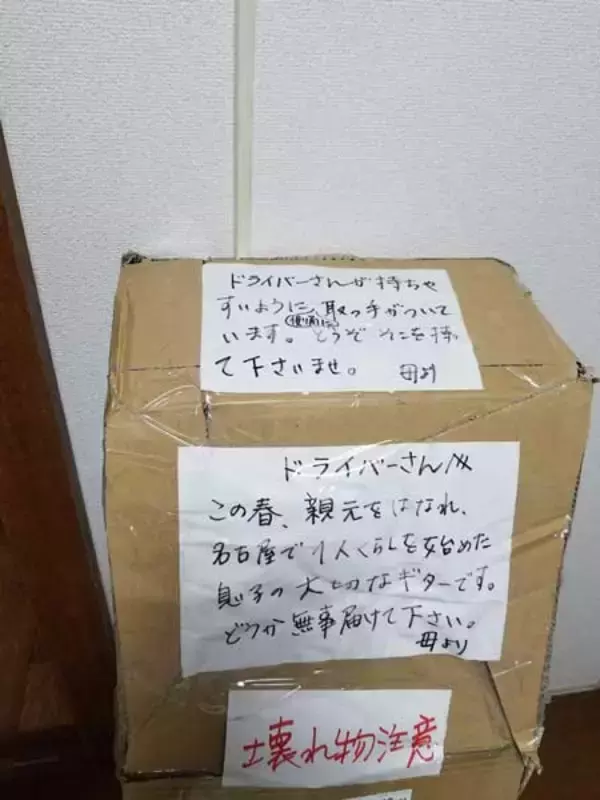 ドライバーさんが持ちや
すいように、取っ手がついて
います。側面にどうぞそこを持っ
て下さいませ。 母より
ドライバーさんへ
この春、親元をはなれ、
名古屋で1人くらしを始めた
息子の大切なギターです。
どうか無事届けて下さい。
母より
壊れ物注意